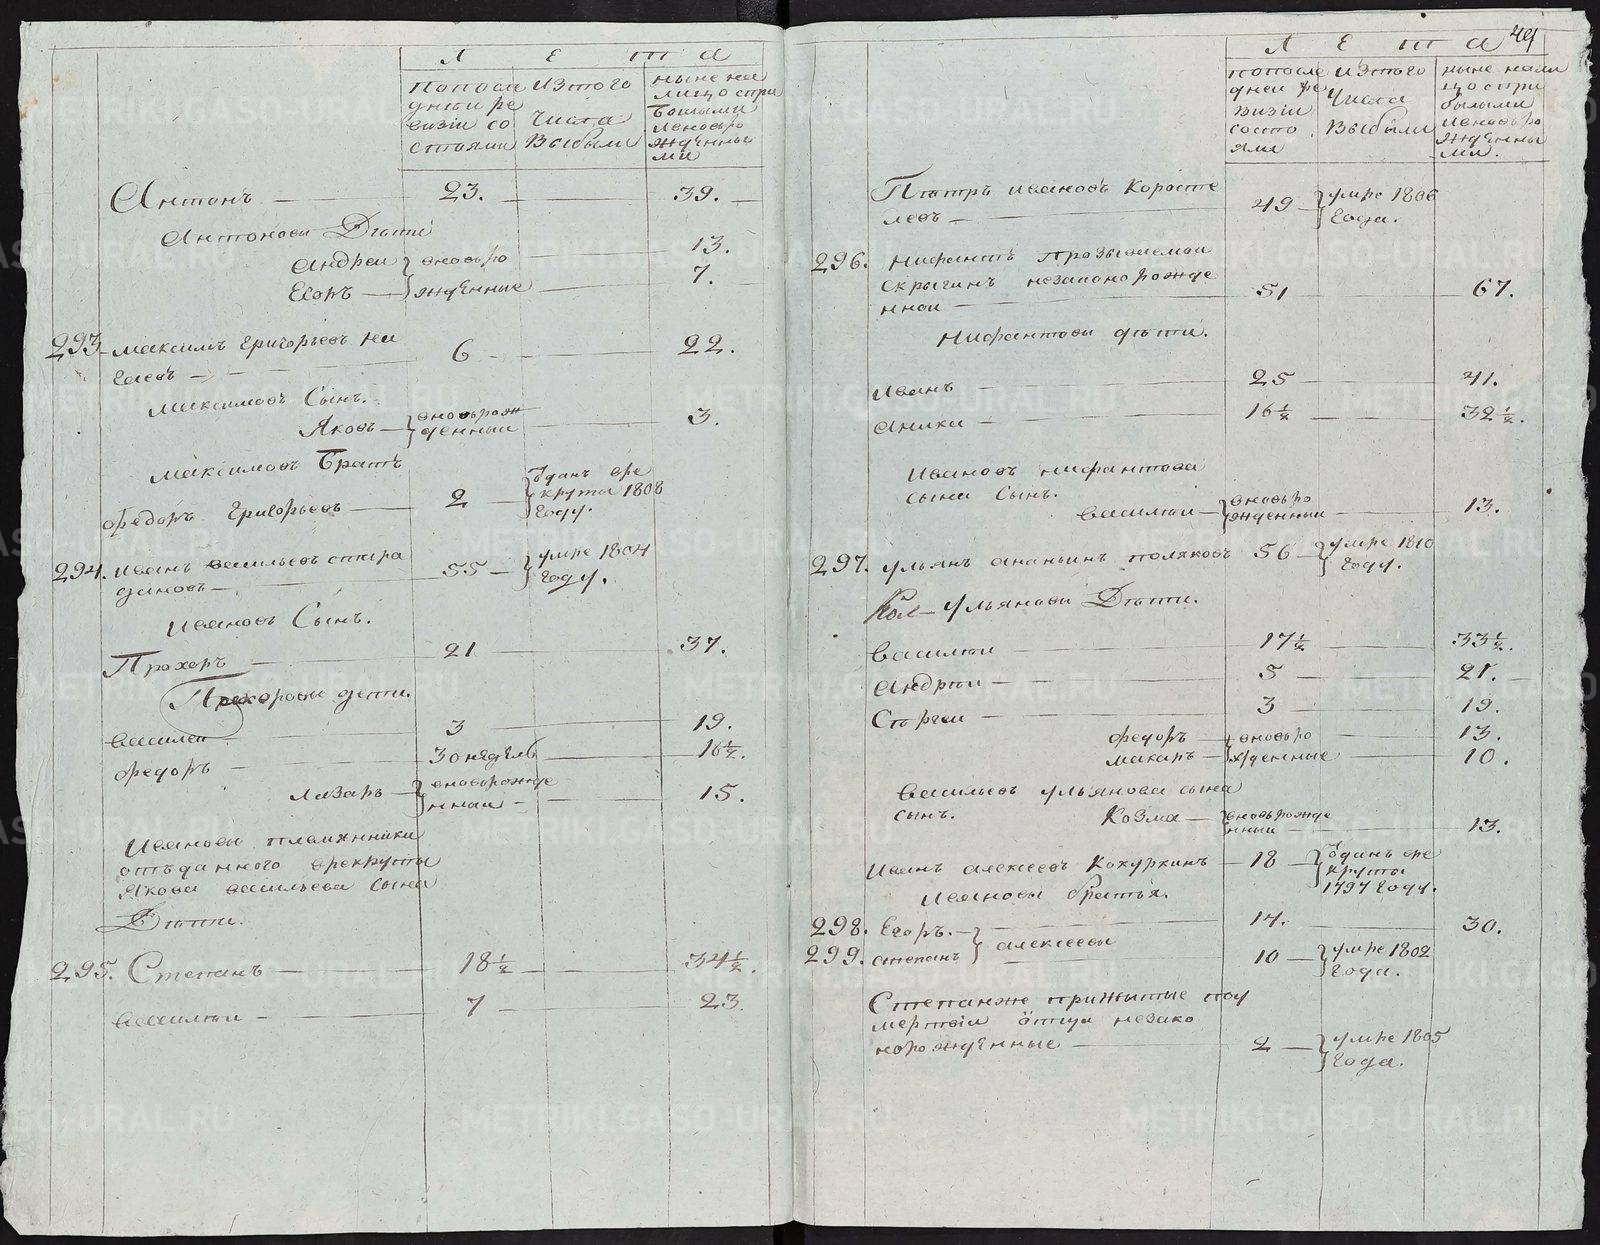 Л Е т а
попосле
дней ре
визiи со
стояли
изтого
числа
выбыли
ныне на
лицо спри
былыми
иновро
жденны
ми
Антонъ 23. 39.
Антоновы Дѣти
Андреи вновьро 13.
Егоръ жденные 7.
293. максимъ григорьевъ На 6 22.
гаевъ
максимовъ Сынъ.
Яковъ вноворож 3.
денныи
максимовъ Братъ
Федоръ григорьевъ 2 ѿданъ вре
круты 1808
году.
294. иванъ васильевъ стира 55 умре 1804
дановъ году.
ивановъ Сынъ.
Прохоръ 21 37.
Прохоровы дети.
василеи 3 19.
федоръ 30 недѣль 16½.
Лазарь вноворожде 15.
нныи
Ивановы племянники
отъданного врекруты
Якова васильева сына
Дѣти.
295. Степанъ 18½ 34½.
василеи 7 23.
49
Л Е т а
попосле
дней ре
визiи
состо
яли
изтого
числа
выбыли
ныне нали
цо спри
былыми
иновьро
жденны
ми.
Петръ ивановъ Коросте 49 умре 1806
левъ года.
296. нифантъ прозываемои
скрыгинъ незаконорожде 51 67.
ннои
нифантовы дѣти.
иванъ 25 41.
аника 16½ 32½.
Ивановъ нифантова
сына Сынъ.
василеи вновьро 13.
жденныи
297. ульянъ ананьинъ поляковъ 56 умре 1810
году.
Ульяновы Дѣти.
василеи 17½ 33½.
Андреи 5 21.
Сергеи 3 19.
федоръ вновьро 13.
макаръ жденные 10.
васильевъ ульянова сына
сынъ. Козма вновьрожде 13.
нныи
иванъ алексеевъ Кокуркинъ 18 ѿданъ вре
круты
1797 году.
ивановы братья.
298. Егоръ. 14. 30.
алексеевы
299. степанъ 10 умре 1802
года.
Степанже прижытые поу
мертвiи отца незако
норожденные 2 умре 1805
года.
METRIKI.GASO-URAL.RU